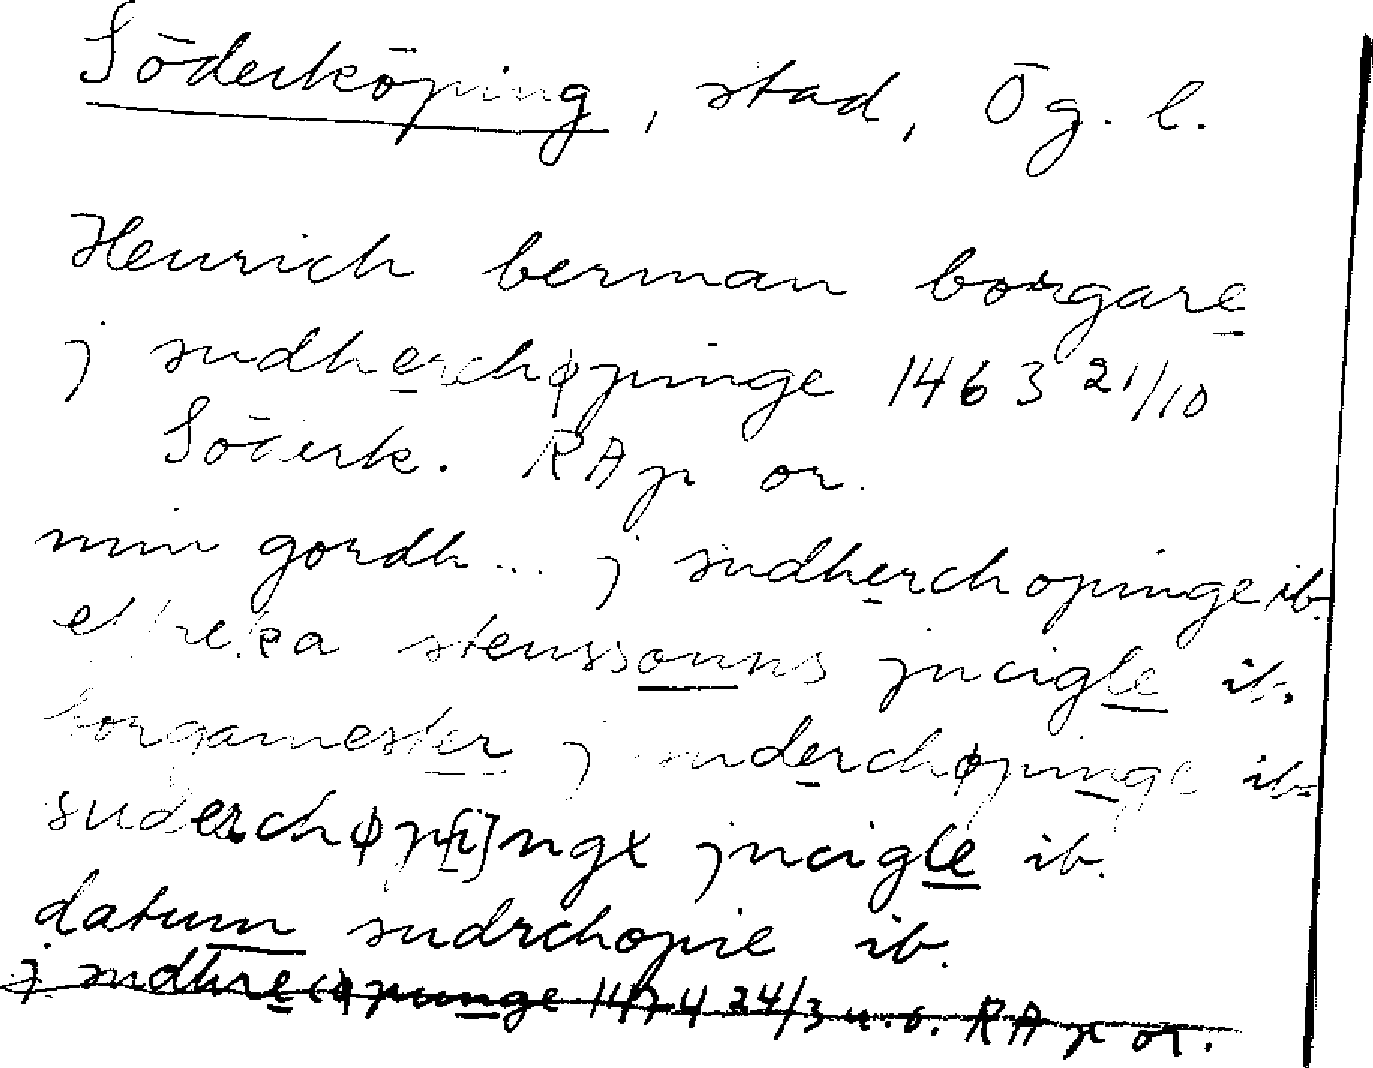 Söderköping, stad, Ög. l.
Henrich berman borgare
j sudherchøpinge 1463 21/10
Söderk. RAp or.
min gordh... j sudherchopinge ib.
stenssonns jncigle ib.
borgamester j suderchøpinge ib.
suderchøp[i]ngx jncigle ib.
datum sudrchopie ib.
j sudhrecøpunge 1474 24/3 u.o. RAp or.